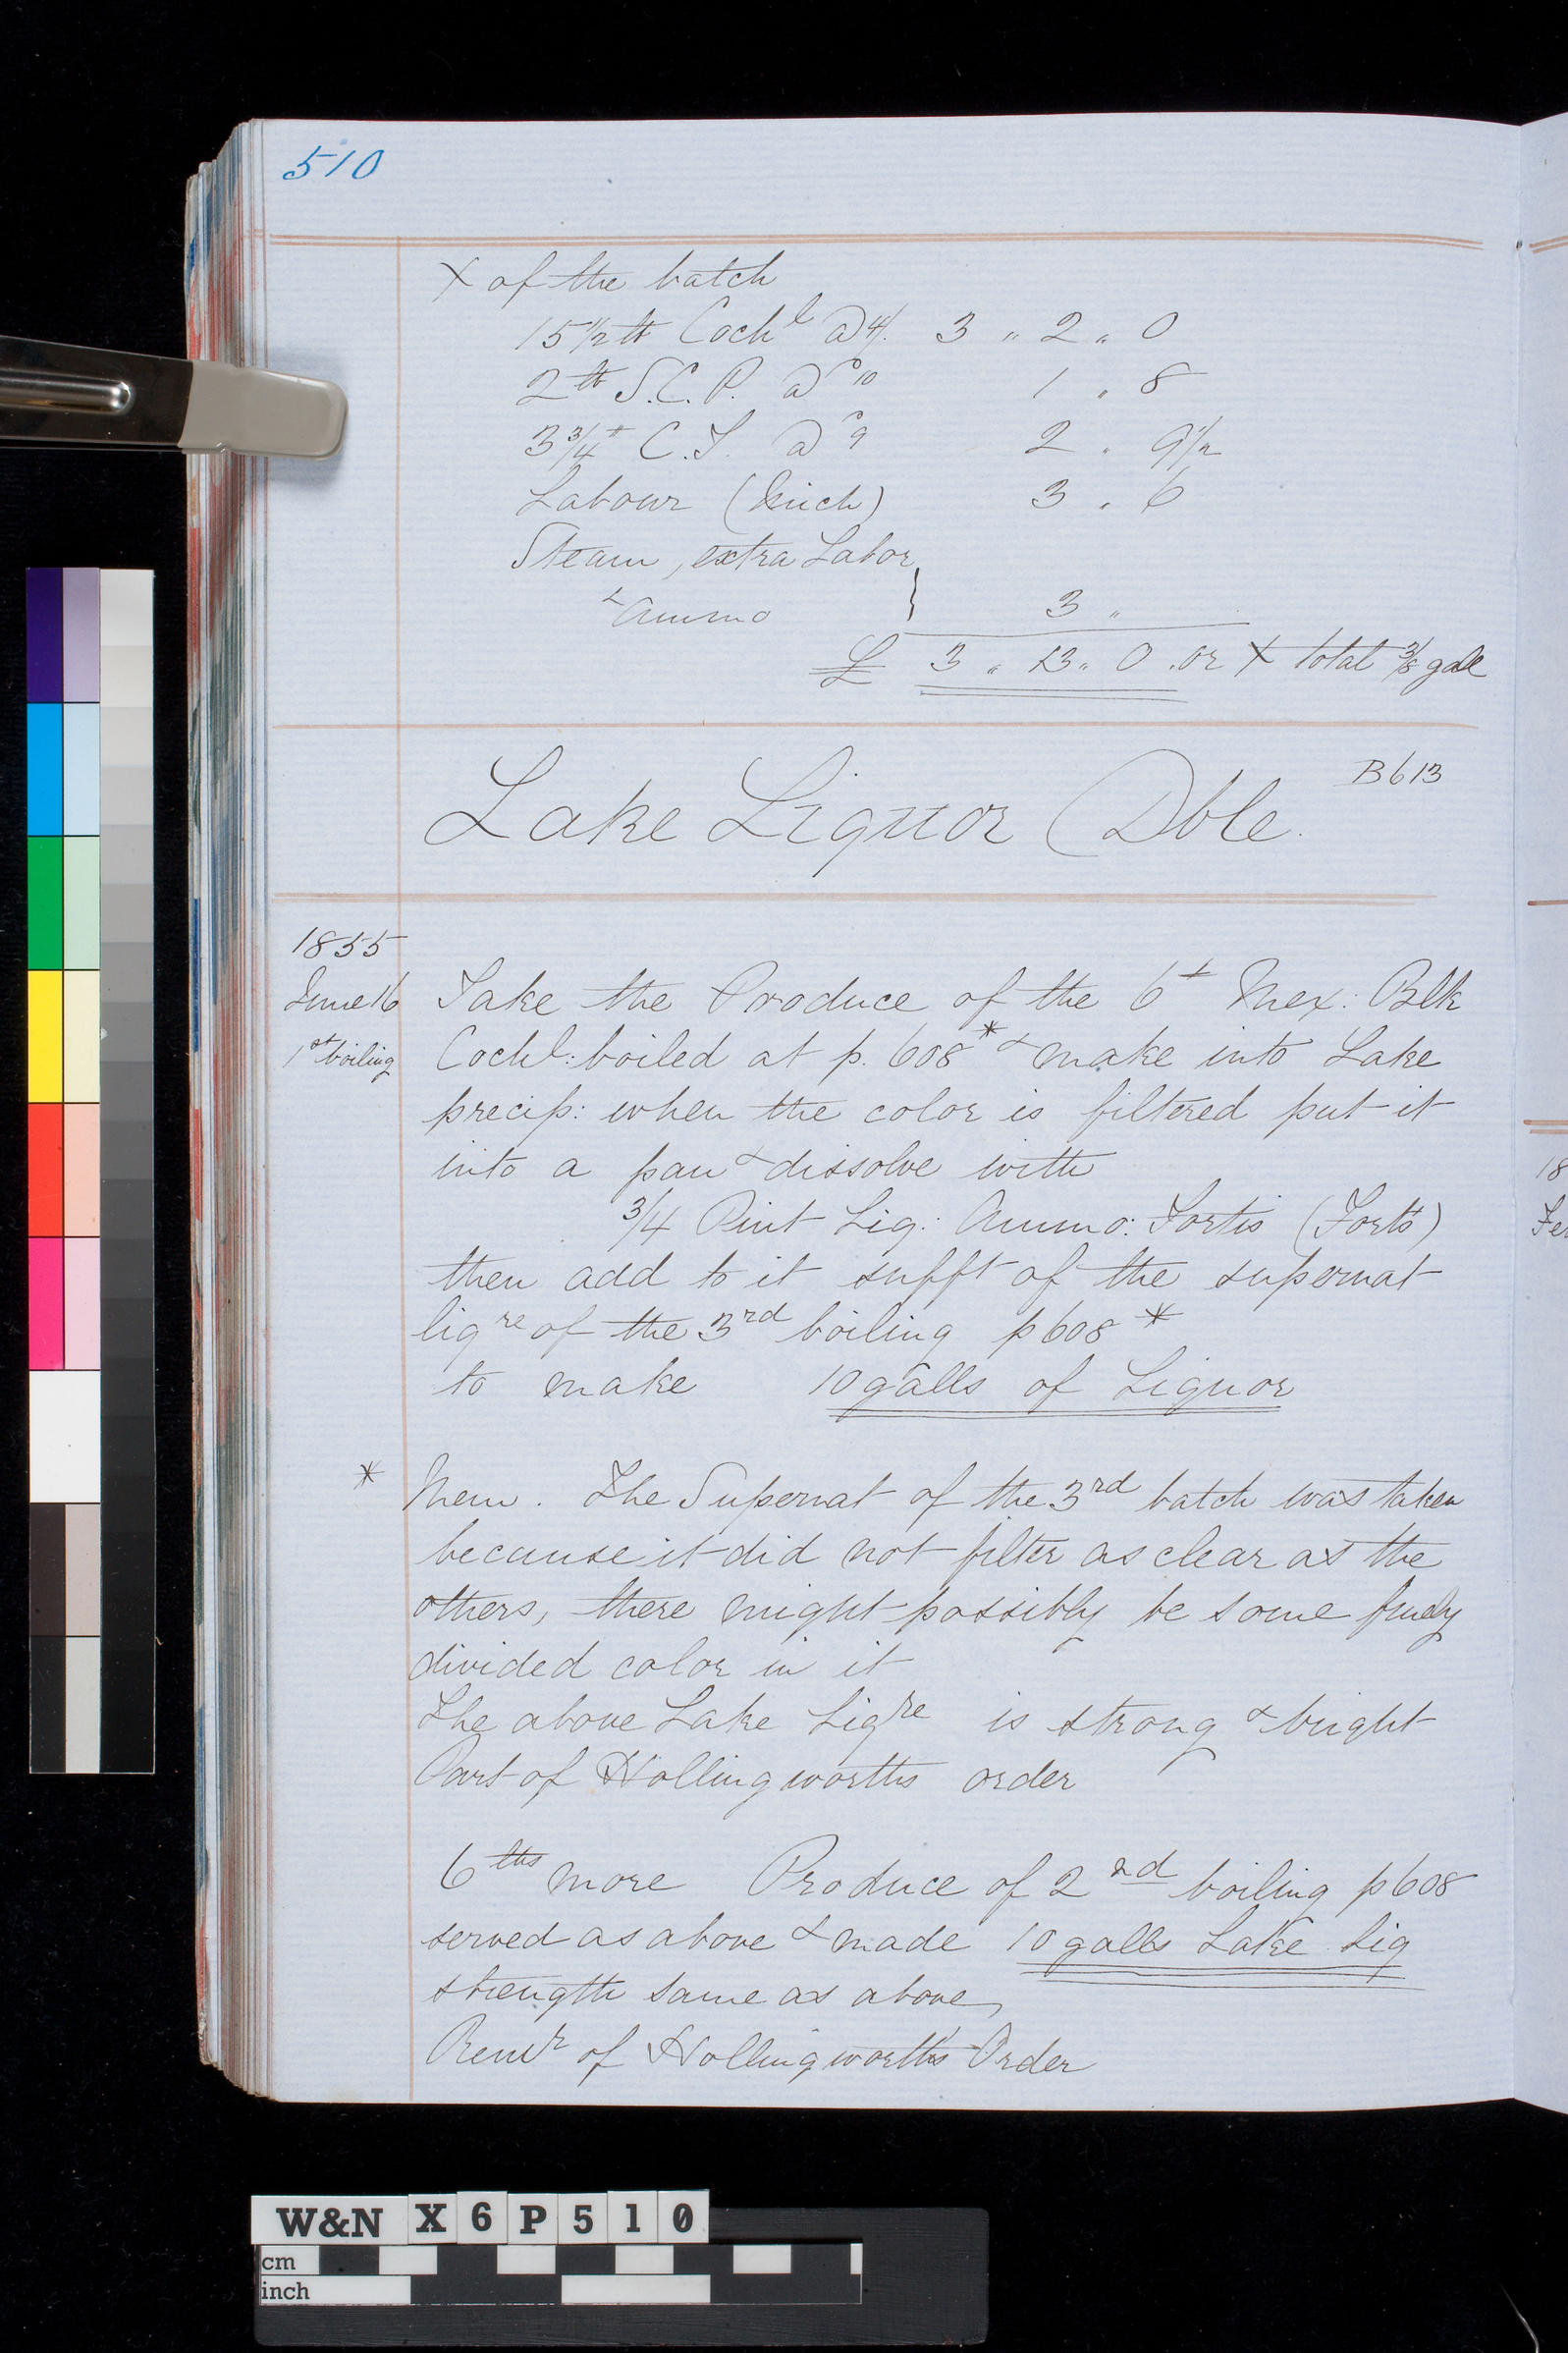 510
X of the batch
15 1/2 lb Cochl @ 4/. 3 " 2 " 0
2 lb S.C.P. @ 10 1 " 8
3 3/4 lb C.T. @ 9 2 " 9 1/2
Labour (Quick) 3 " 6
Steam, extra Labor
& Ammo } 3 "
£ 3 " 13 " 0 . or X total 3/8 gall
B613
Lake Liquor (Dble.
1855
June 16 Take the Produce of the 6 lb Mex: Blk
1st boiling Cochl: boiled at p. 608 * & make into Lake
precip: when the color is filtered put it
into a pan & dissolve with
3/4 Pint Liq: Ammo: Fortis (Forts)
then add to it sufft of the supernat
liqre of the 3rd boiling p608 *
to make 10 galls of Liquor
* Mem. The Supernat of the 3rd batch was taken
because it did not filter as clear as the
others, there might possibly be some finely
divided color in it
The above Lake Liqre is strong & bright
Part of Hollingworths order
6 lbs more Produce of 2nd boiling p608
served as above & made 10 galls Lake Liq
strength same as above,
Remr of Hollingworth's Order
18
Fe
W&N X6P510
cm
inch